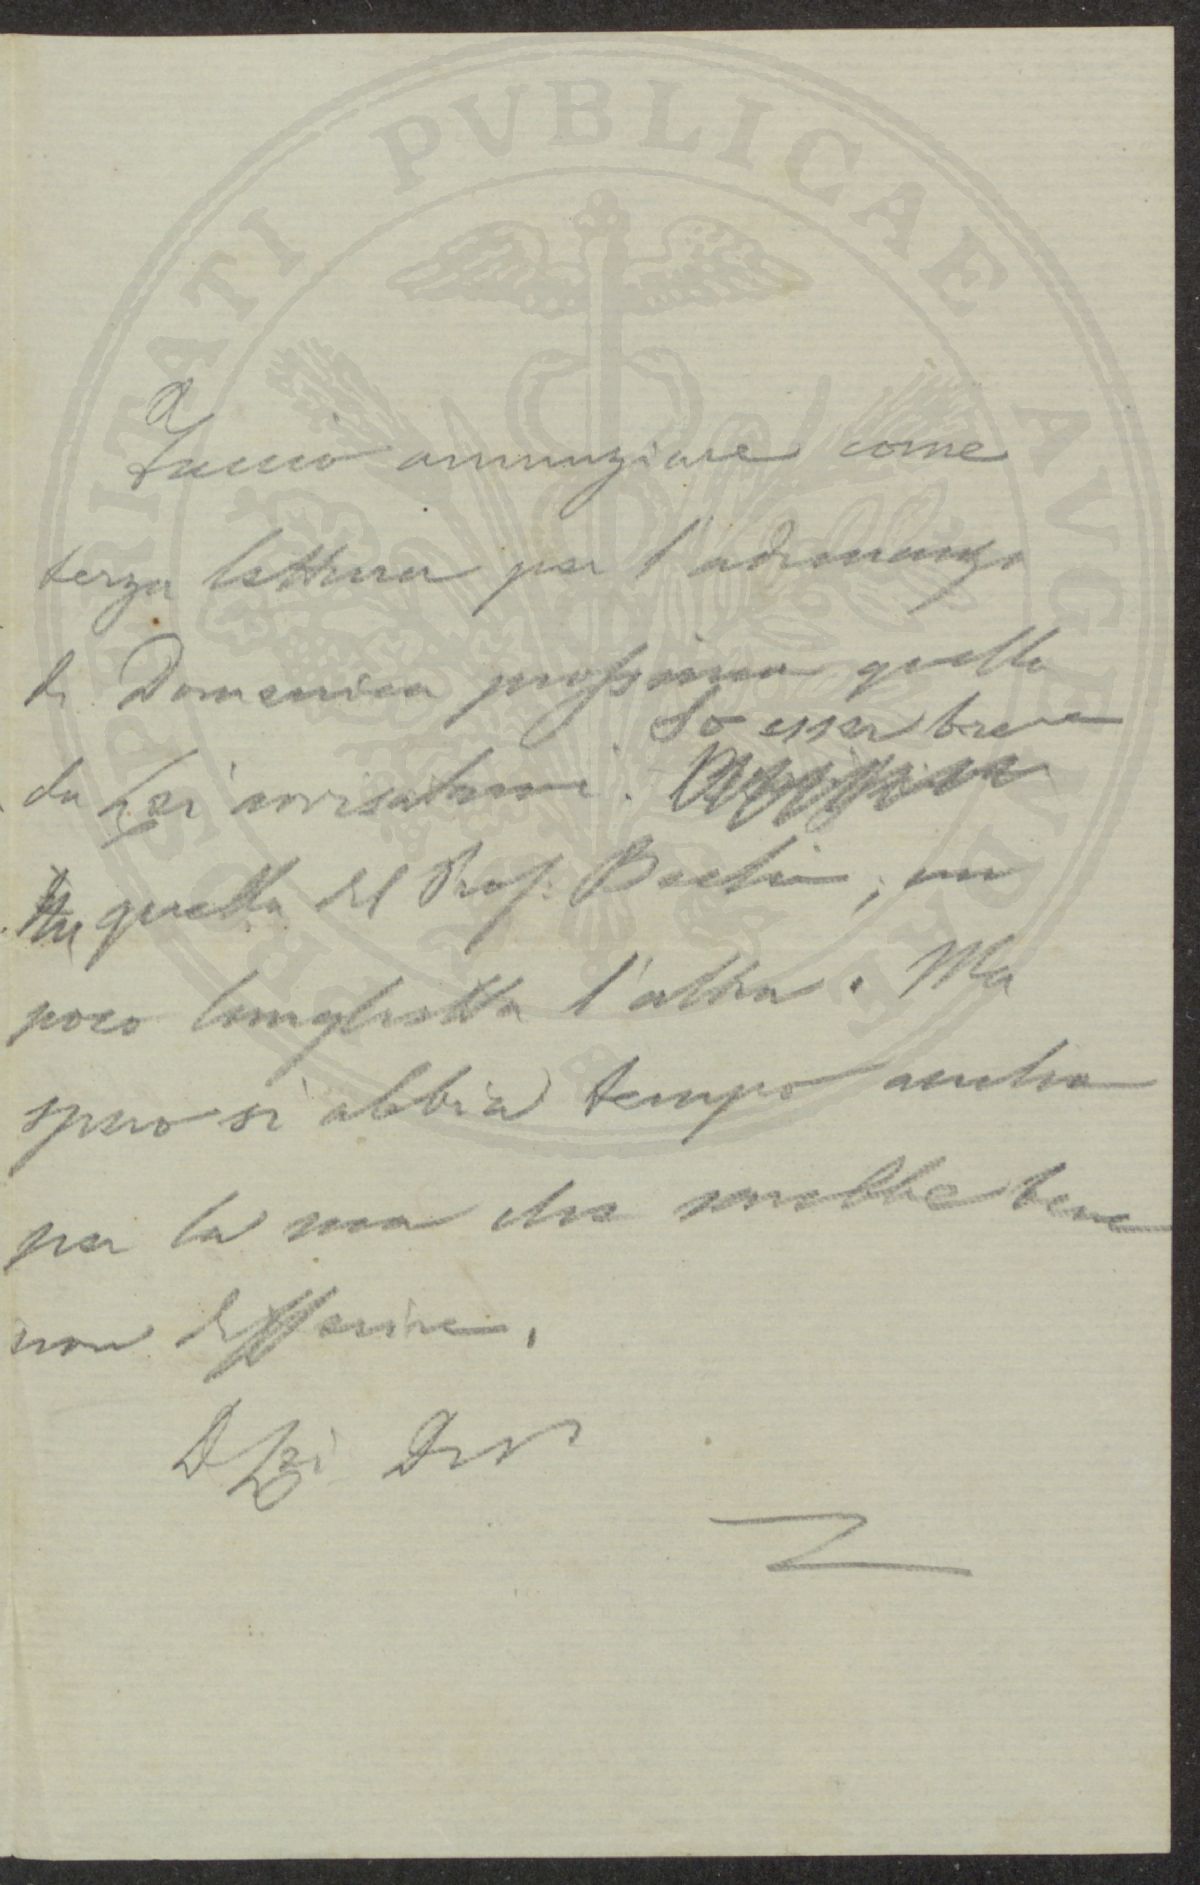 Faccio annunziare come
terza lettura per l'adunanza
di Domenica prossima quella
da Lei avvisatami. So esser breve
quella del Prof. Bechi, un
poco lunghetta l'altra. Ma
spero si abbia tempo anche
per la sua che sarebbe bene
non differire.
D Lei Dev
PROSPERITATI PVBLICAE AVGENDAE